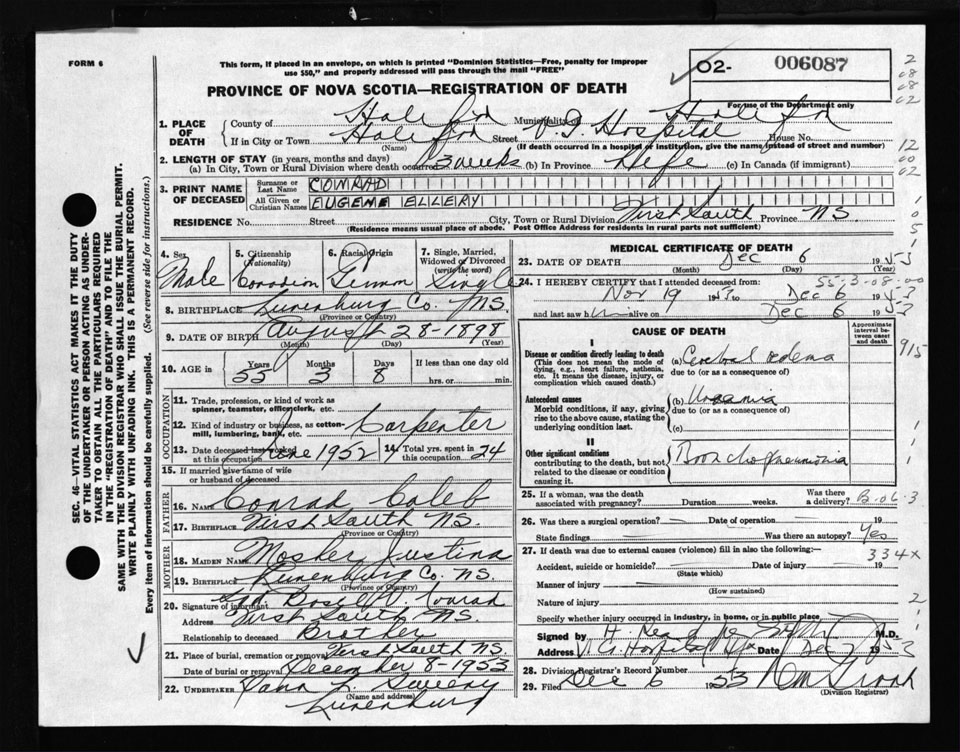 FORM 6
This form, if placed in an envelope, on which is printed "Dominion Statistics—Free, penalty for improper
use $50," and properly addressed will pass through the mail "FREE"
O2- 006087
For use of the Department only
PROVINCE OF NOVA SCOTIA—REGISTRATION OF DEATH
1. PLACE OF DEATH
County of Halifax Municipality Halifax
If in City or Town Halifax Street V.G. Hospital House No.
(Name) (If death occurred in a hospital or institution, give the name instead of street and number)
2. LENGTH OF STAY (in years, months and days)
(a) In City, Town or Rural Division where death occurred 3 weeks (b) In Province Life (c) In Canada (if immigrant)
3. PRINT NAME OF DECEASED
Surname or Last Name CONRAD
All Given or Christian Names EUGENE ELLERY
RESIDENCE No. Street City, Town or Rural Division First South Province NS.
(Residence means usual place of abode. Post Office Address for residents in rural parts not sufficient)
4. Sex Male
5. Citizenship (Nationality) Canadian
6. Racial Origin German
7. Single, Married, Widowed or Divorced (write the word) Single
8. BIRTHPLACE Lunenburg Co. NS.
(Province or Country)
9. DATE OF BIRTH August 28-1898
(Month) (Day) (Year)
10. AGE in Years 55 Months 3 Days 8 If less than one day old
hrs. or min.
OCCUPATION
11. Trade, profession, or kind of work as
spinner, teamster, office clerk, etc.
12. Kind of industry or business, as cotton-
mill, lumbering, bank, etc. Carpenter
13. Date deceased last worked at this occupation June 1952 14. Total yrs. spent in this occupation 24
15. If married give name of wife
or husband of deceased
FATHER
16. NAME Conrad Caleb
17. BIRTHPLACE First South NS.
(Province or Country)
MOTHER
18. MAIDEN NAME Mosher Justina
19. BIRTHPLACE Lunenburg Co. NS.
(Province or Country)
20. Signature of informant Conrad
Address First South NS.
Relationship to deceased Brother
21. Place of burial, cremation or removal First South NS.
Date of burial or removal December 8-1953
22. UNDERTAKER Sweeny
(Name and address)
Lunenburg
MEDICAL CERTIFICATE OF DEATH
23. DATE OF DEATH Dec 6 1953
(Month) (Day) (Year)
55-3-08-00
24. I HEREBY CERTIFY that I attended deceased from:
Nov 19 1953 to Dec 6 1953
and last saw him alive on Dec 6 1953
CAUSE OF DEATH
Approximate interval between cause and death
I
Disease or condition directly leading to death
(This does not mean the mode of dying, e.g., heart failure, asthenia, etc. It means the disease, injury, or complication which caused death.)
(a) Cerebral oedema
due to (or as a consequence of)
Antecedent causes
Morbid conditions, if any, giving rise to the above cause, stating the underlying condition last.
(b) Uraemia
due to (or as a consequence of)
(c)
II
Other significant conditions
contributing to the death, but not related to the disease or condition causing it.
Bronchopneumonia
25. If a woman, was the death associated with pregnancy? Duration weeks. Was there a delivery? B-06-3
26. Was there a surgical operation? — Date of operation 19
State findings Was there an autopsy? Yes
27. If death was due to external causes (violence) fill in also the following:— 334X
Accident, suicide or homicide? Date of injury 19
(State which)
Manner of injury
(How sustained)
Nature of injury
Specify whether injury occurred in industry, in home, or in public place
Signed by M.D.
Address V.G. Hospital Hfx Date Dec 1953
28. Division Registrar's Record Number
29. Filed Dec 6 1953
(Division Registrar)
SEC. 46—VITAL STATISTICS ACT MAKES IT THE DUTY
OF THE UNDERTAKER OR PERSON ACTING AS UNDER-
TAKER TO OBTAIN ALL THE PARTICULARS REQUIRED
IN THE "REGISTRATION OF DEATH" AND TO FILE THE
SAME WITH THE DIVISION REGISTRAR WHO SHALL ISSUE THE BURIAL PERMIT.
WRITE PLAINLY WITH UNFADING INK. THIS IS A PERMANENT RECORD.
Every item of information should be carefully supplied. (See reverse side for instructions.)
2
08
08
02
12
00
02
1
0
5
1
915
1
1
1
1
2
1